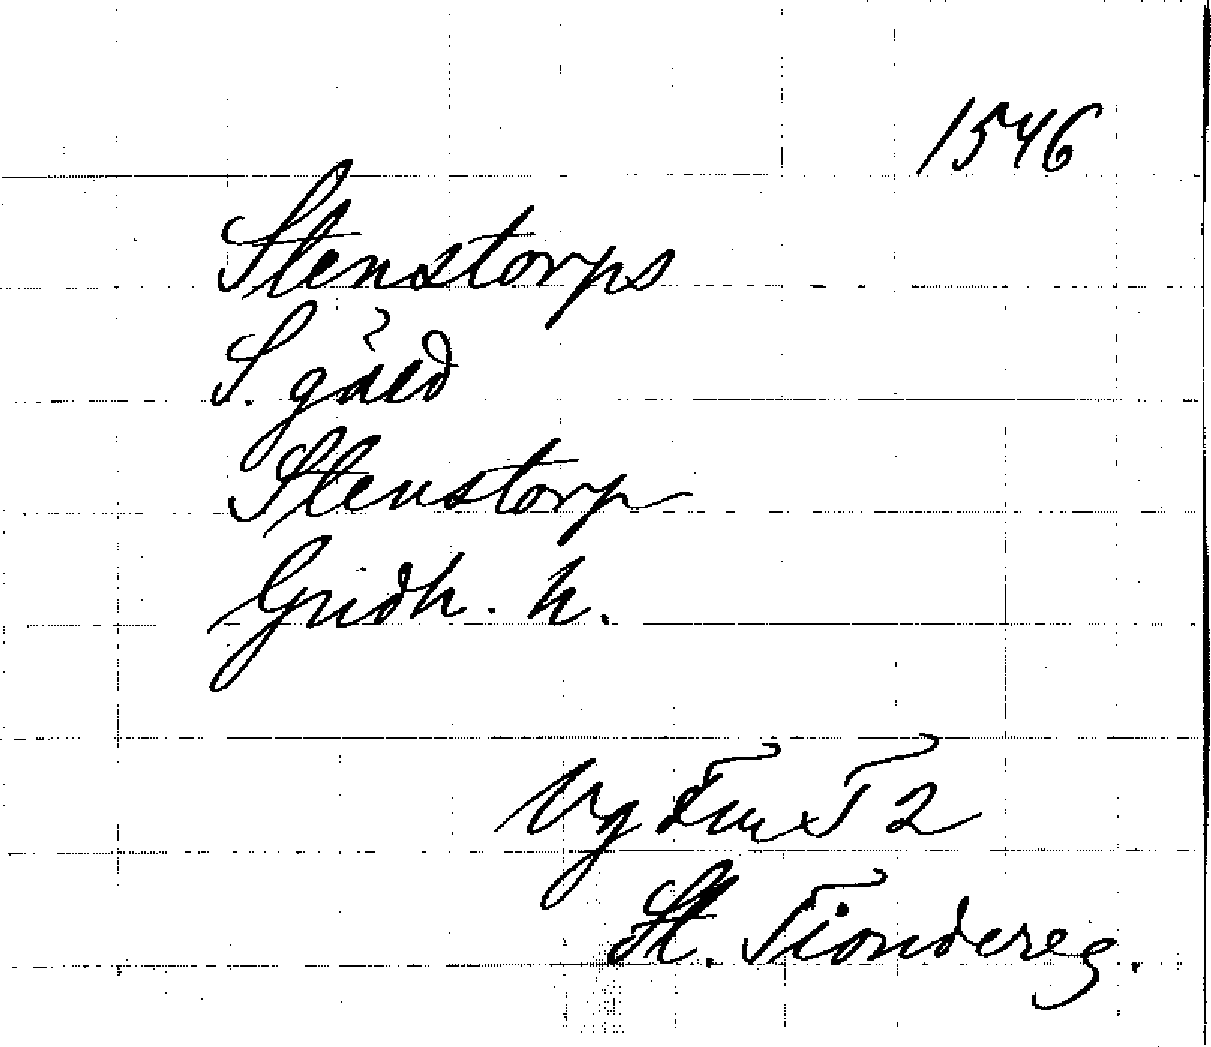 1546
Stenstorps
S. gård
Stenstorp
Gudh. h.
Vg T 2
St. Tiondereg.